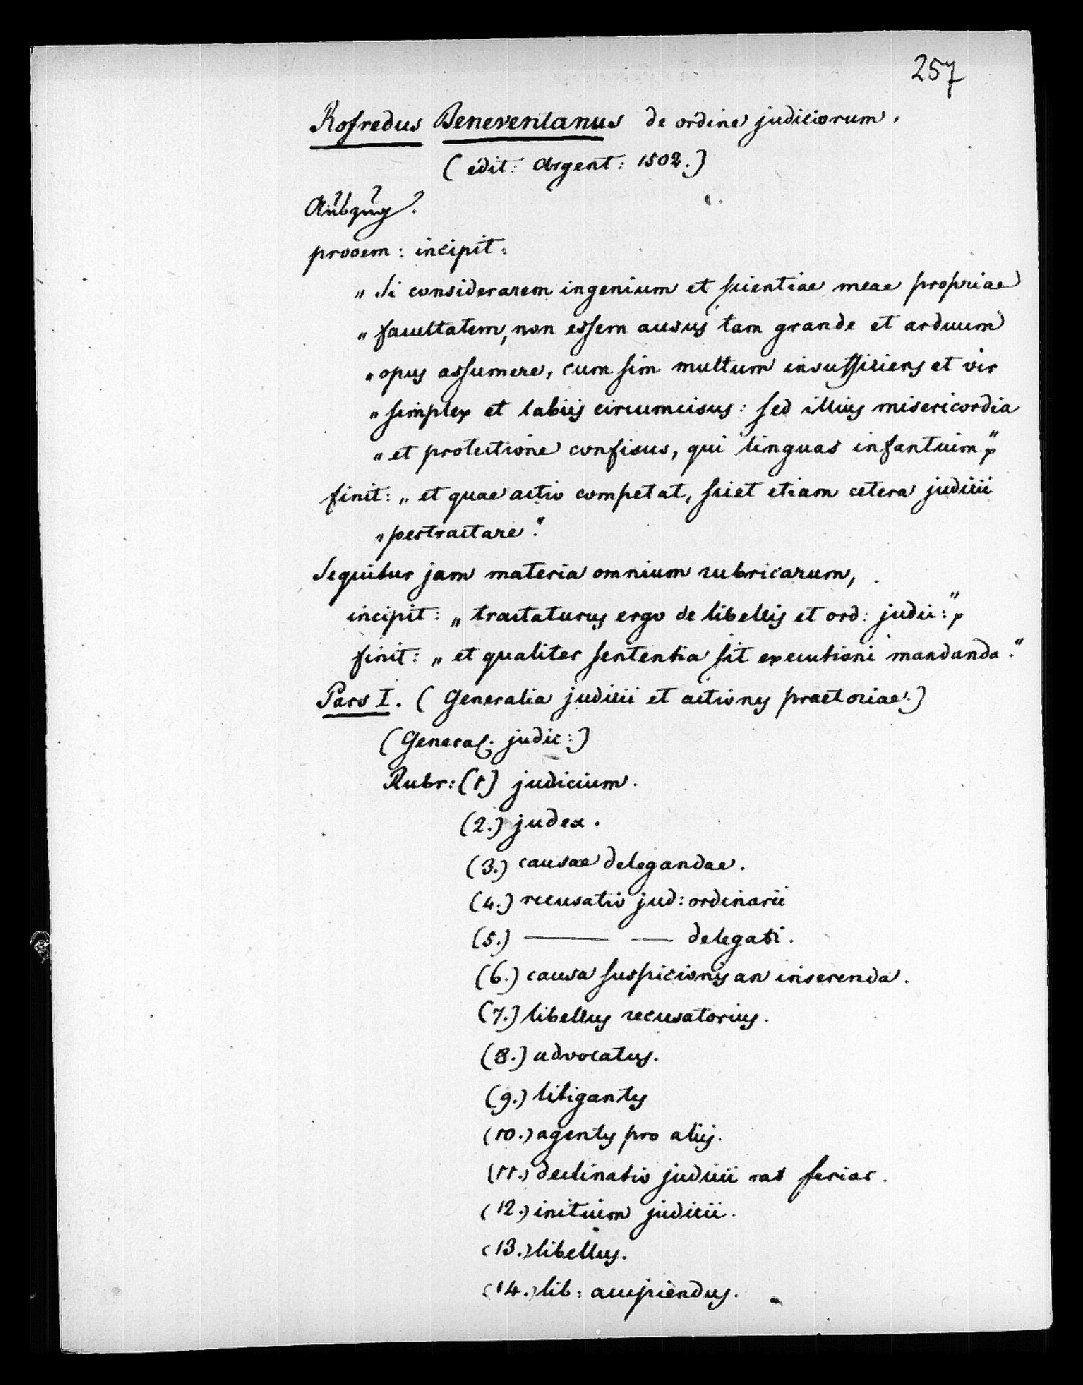 257
Rofredus Beneventanus de ordine judiciorum.
(edit: Argent: 1502.)
Auszug.
prooem: incipit:
„ Si considerarem ingenium et scientiae meae propriae
„ facultatem, non essem ausus tam grande et arduum
„ opus assumere, cum sim multum insufficiens et vir
„ simplex et labiis circumcisus: sed illius misericordia
„ et protectione confisus, qui linguas infantium“
finit: „ et quae actio competat, sciet etiam cetera judicii
„ pertractare.“
Sequitur jam materia omnium rubricarum,
incipit: „ tractaturus ergo de libellis et ord: judic:“
finit: „ et qualiter sententia sit executioni mandanda.“
Pars I. (Generalia judicii et actiones praetoriae.)
(General: judic:)
Rubr: (1) judicium.
(2.) judex.
(3.) causae delegandae.
(4.) recusatio jud: ordinarii
(5.) ——— —— delegati.
(6.) causa suspicionis an inserenda.
(7.) libellus recusatorius.
(8.) advocatus.
(9.) litigantes
(10.) agentes pro aliis.
(11.) declinatio judicii rat feriar.
(12.) initium judicii.
(13.) libellus.
(14.) lib: accipiendus.